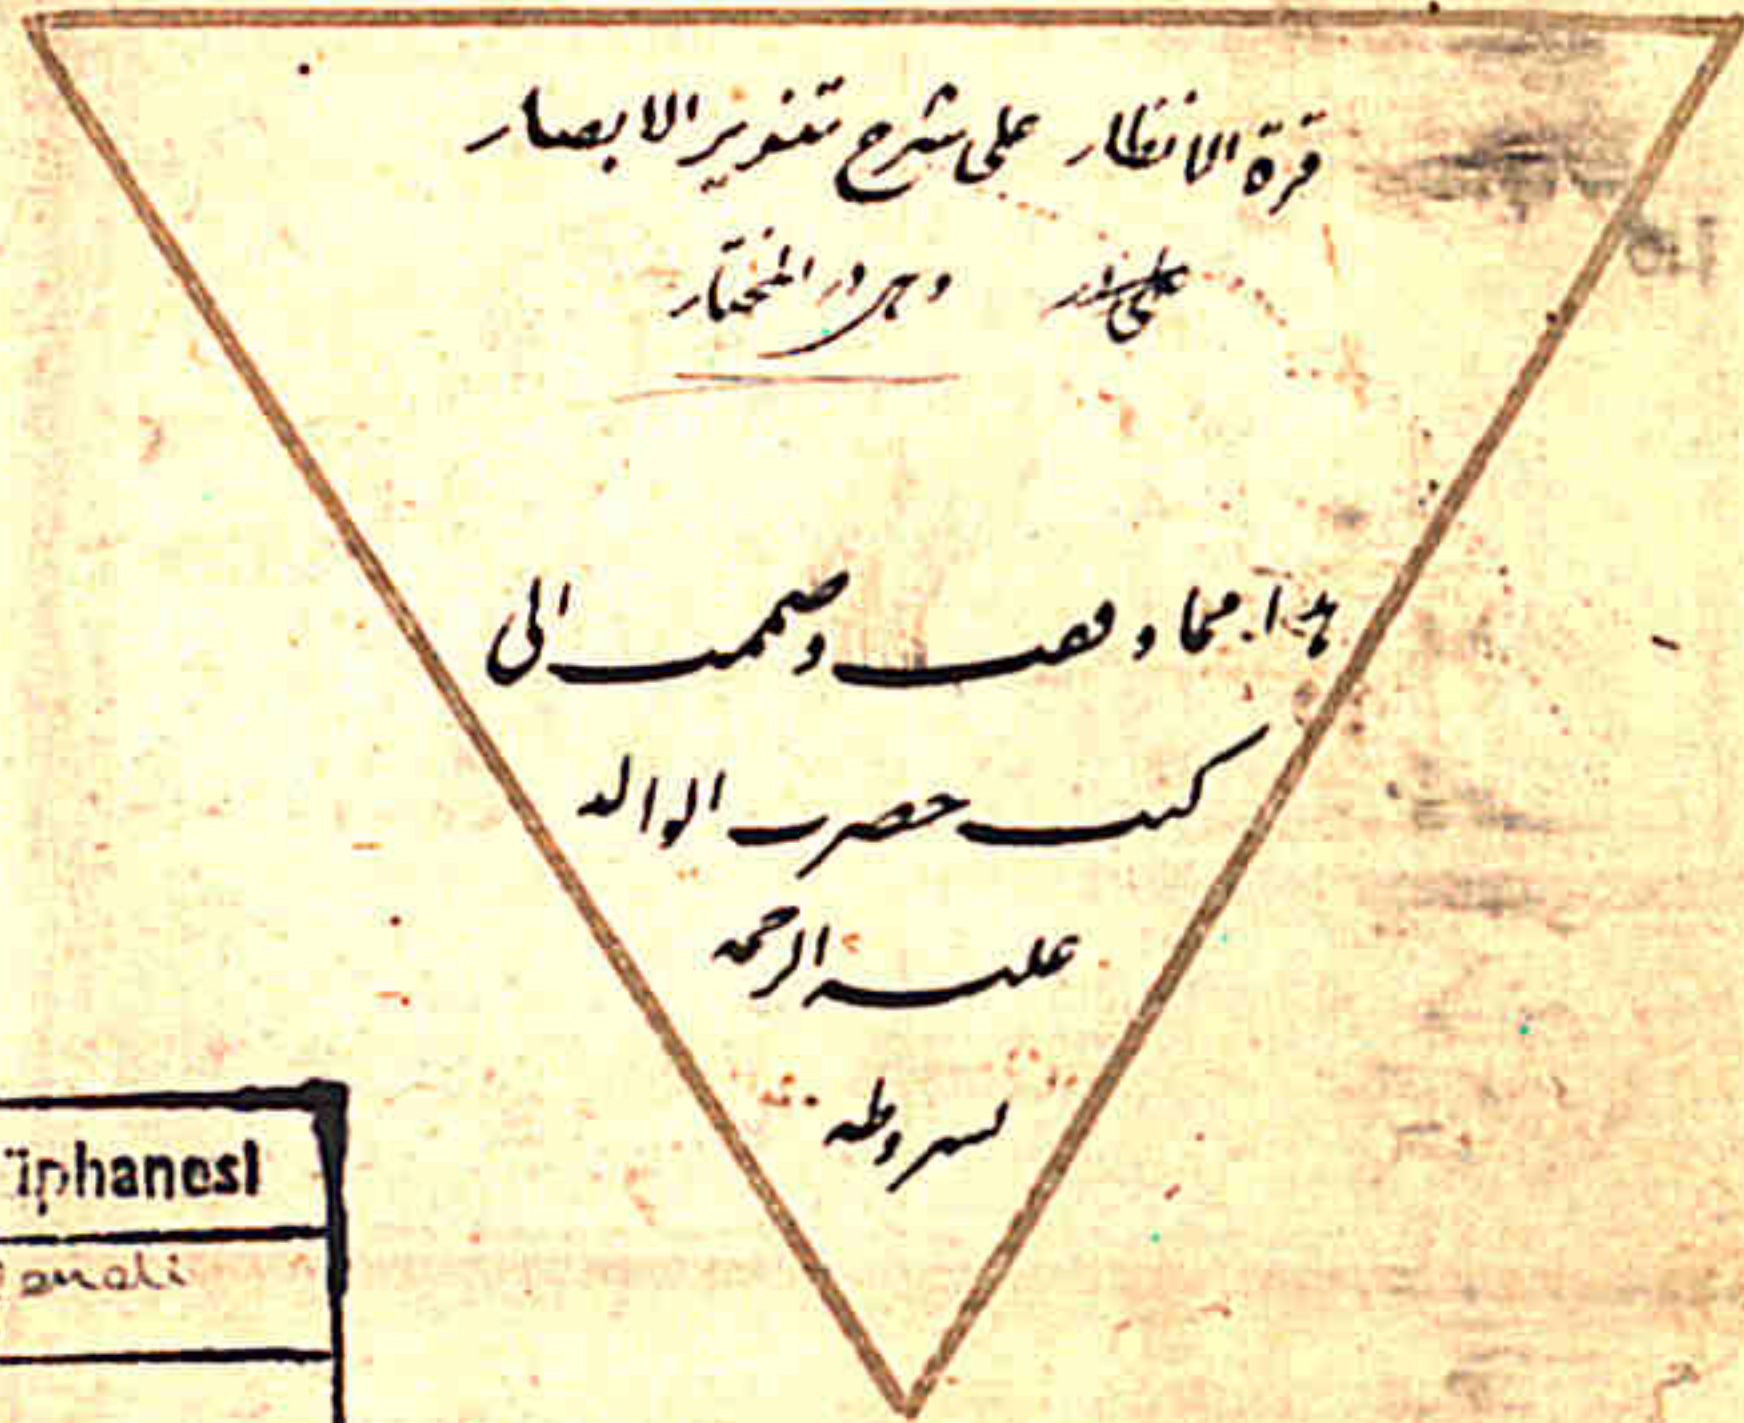 قرة الانظار على شرح تنوير الابصار
وهى در المختار
هذا مما وقفت وضممت الى
كتب حضرت الوالد
عليه الرحمه
بشروطه
üphanesi